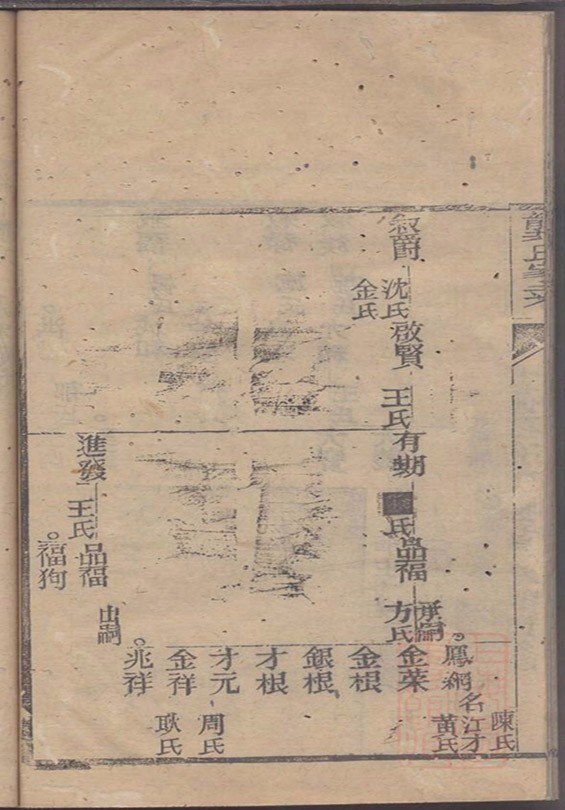 龔氏家
叙爵
沈氏
金氏
啟賢
王氏
有
氏
品福
承嗣
方氏
進發
王氏
品福
出嗣
福狗
鳳網
名江才
陳氏
黃氏
金菜
金根
銀根
才根
才元
周氏
金祥
耿氏
兆祥